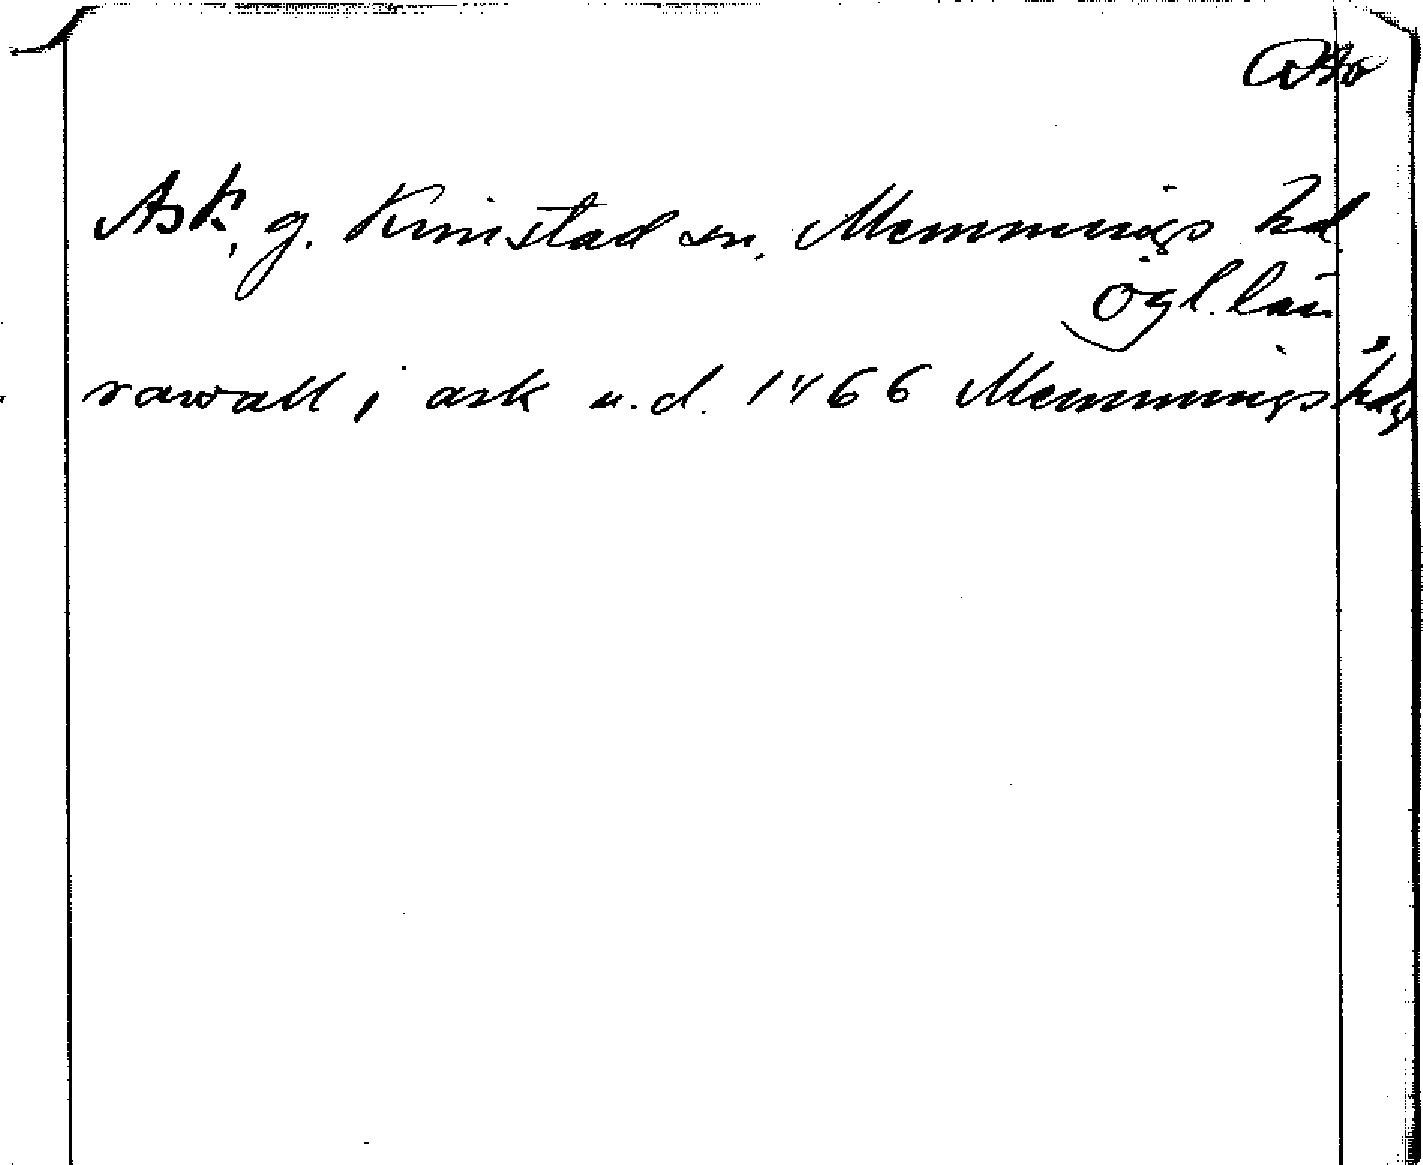 Ask, g. Kimstad sn, Memmings hd.
Ögl. län
rawall i ask u.d. 1466 Memmings hds